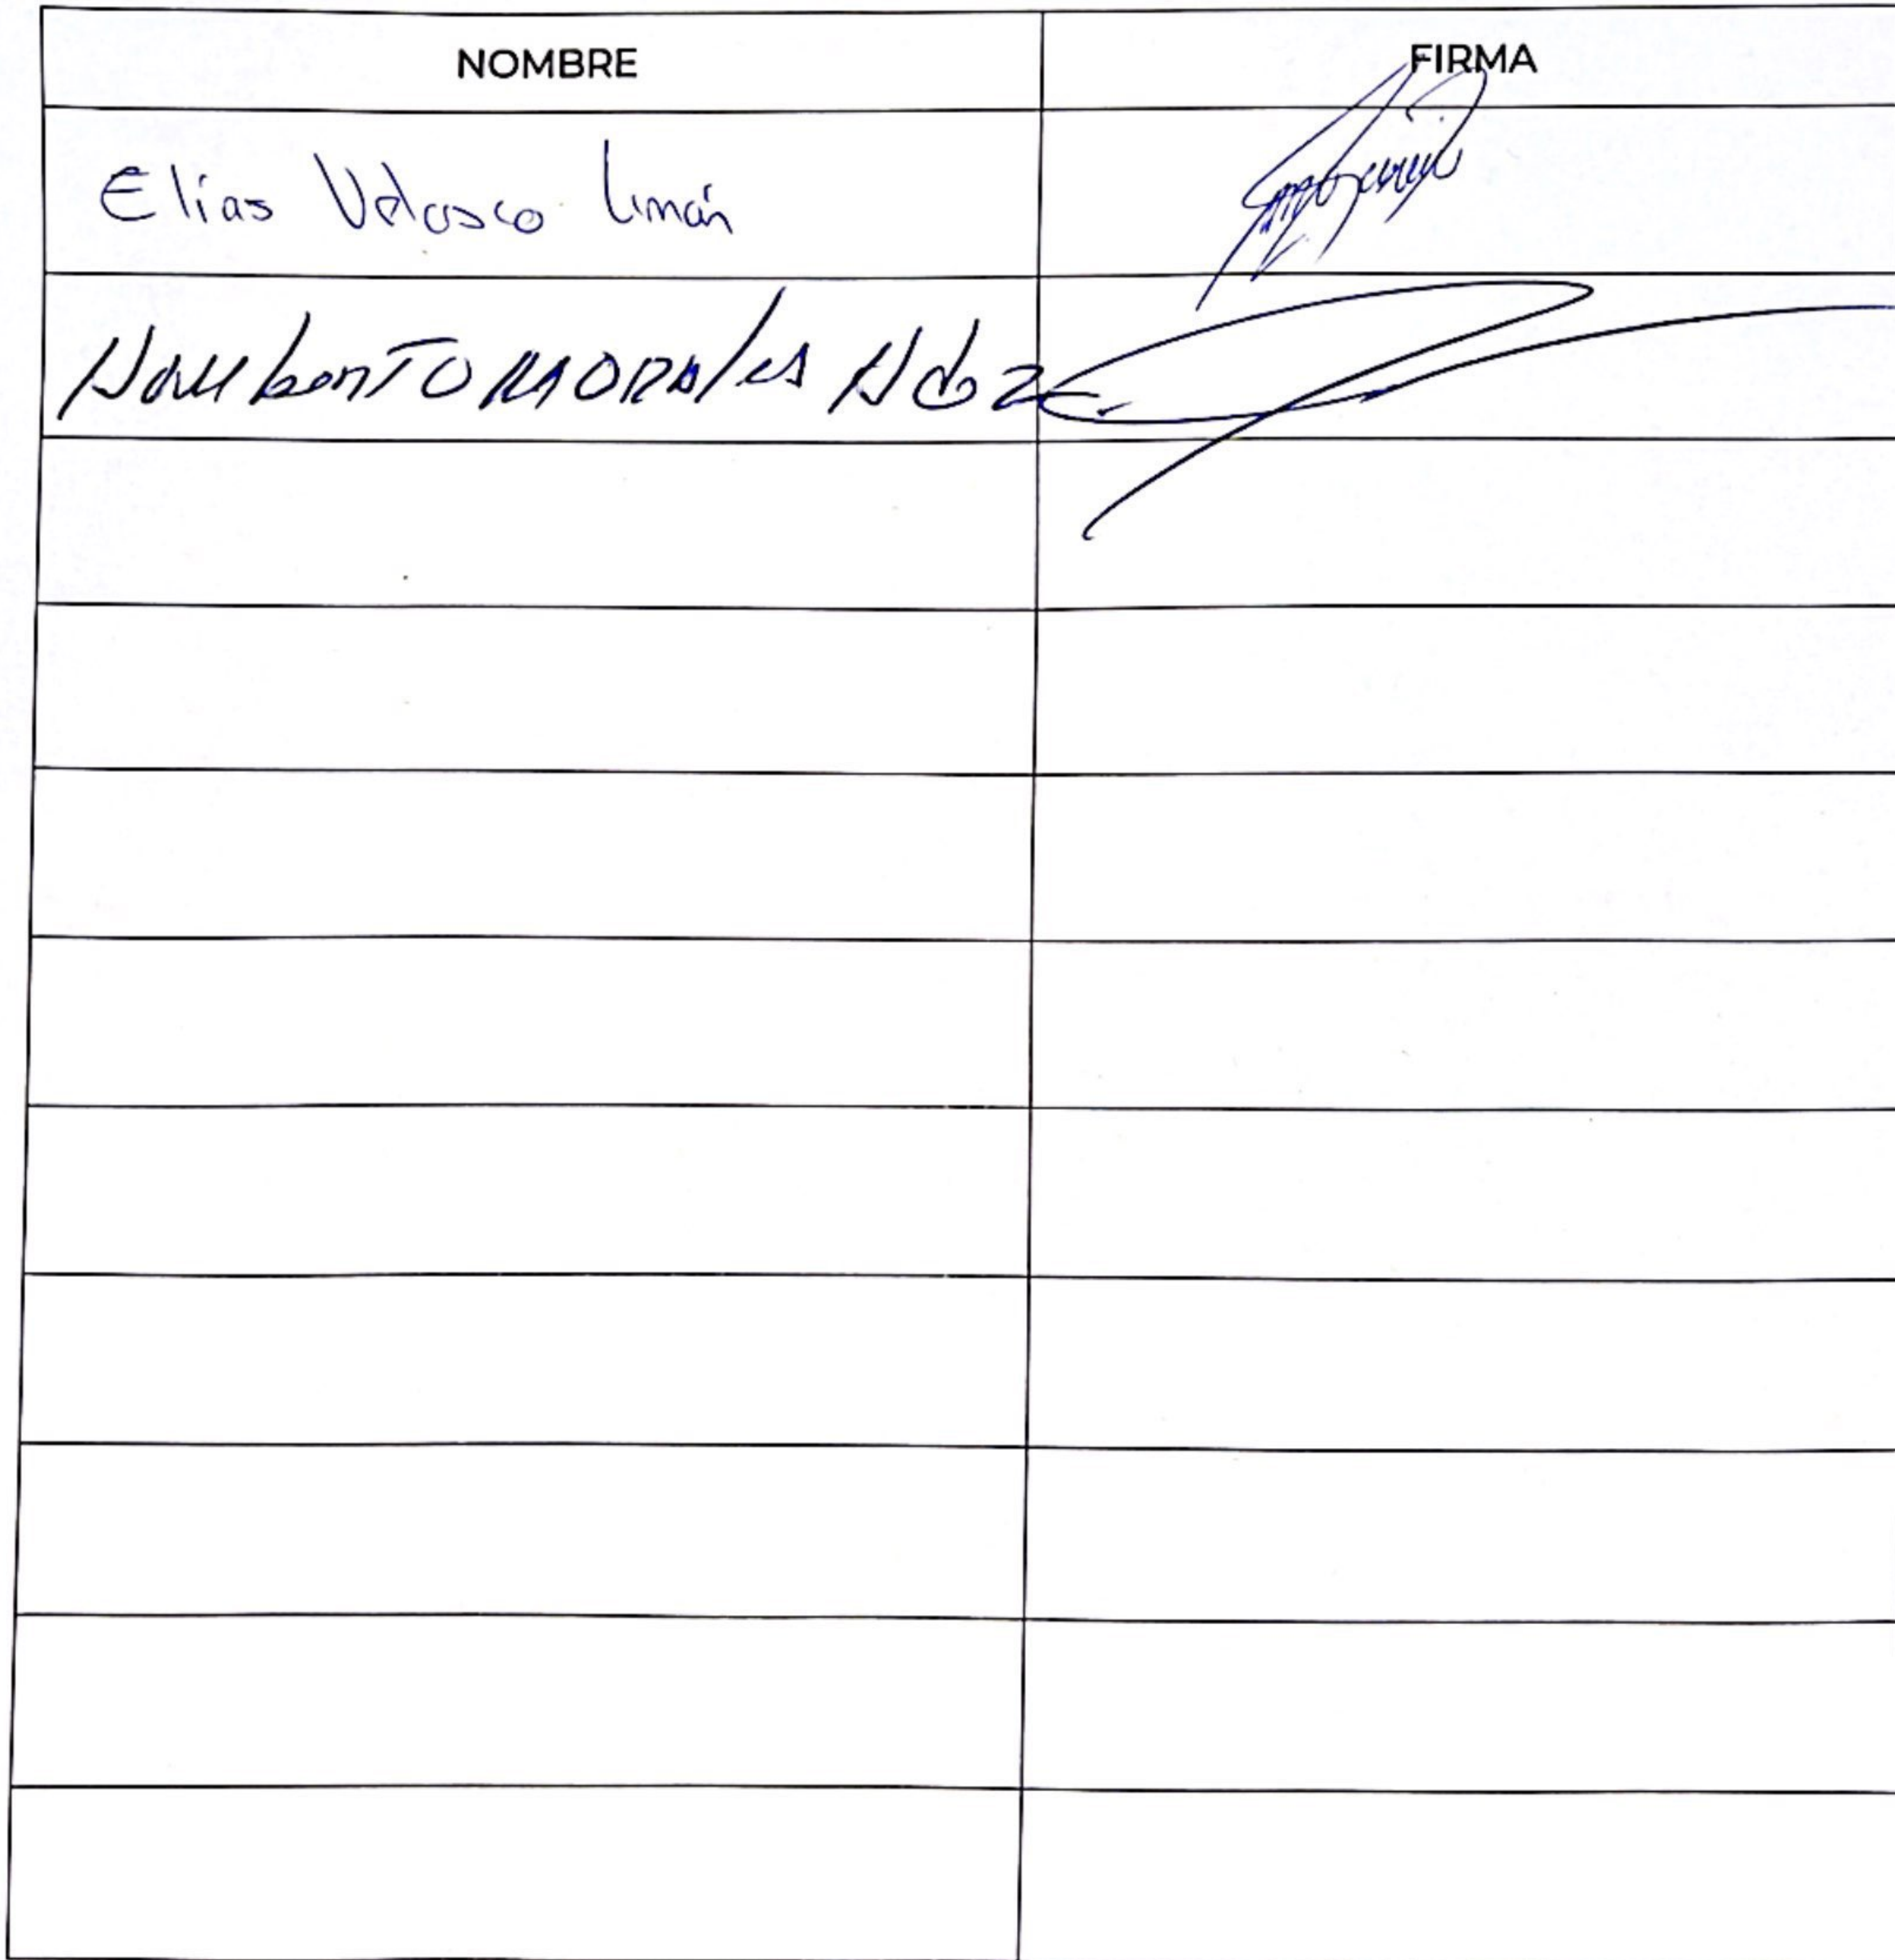 NOMBRE FIRMA
Elias Velasco Limón
Humberto MORAles